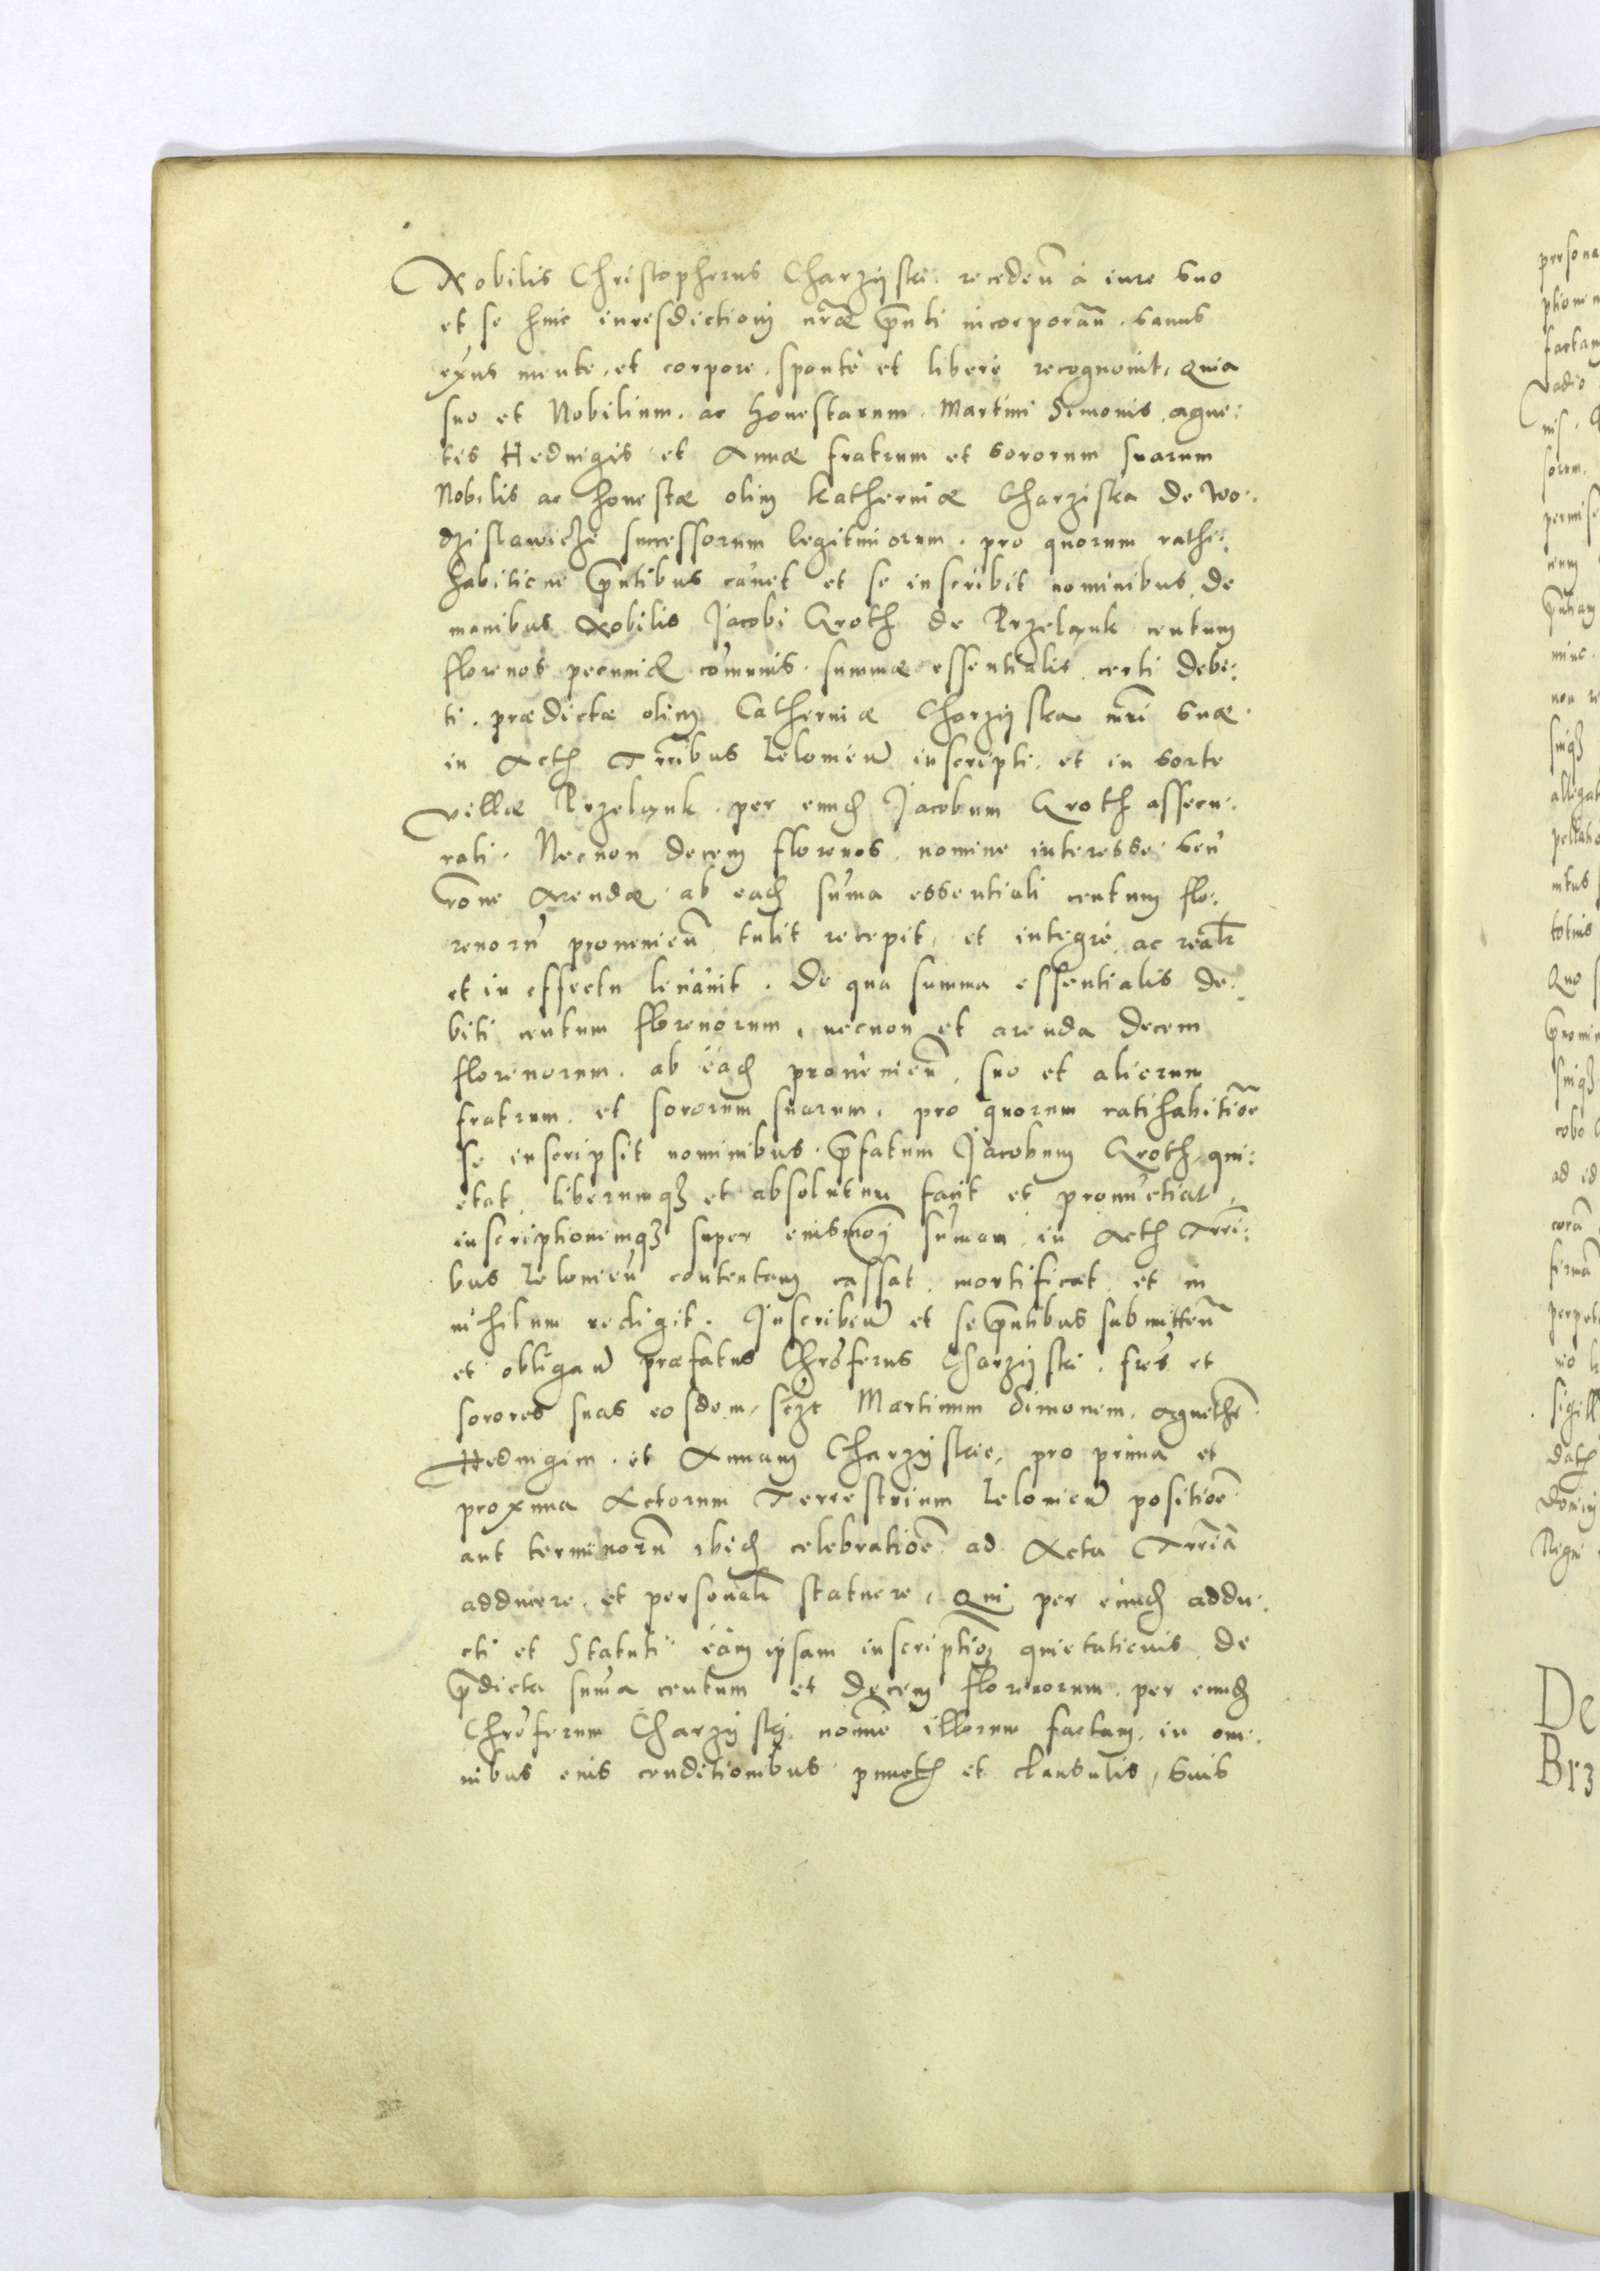 Nobilis Christopherus Charzyski recedeñ à iure suo
et se huic iurisdictioni nr̃æ p̃nti incorporañ. sanus
exñs mente, et corpore, sponte et libere recognouit, Quia
suo et Nobilium. ac honestarum. Martini Simonis, Agne:
tis Hedwigis et Annæ fratrum et sororum suarum
Nobilis ac honestæ olim Katherinæ Charziska de Wo:
dzislawicze successorum legitimorum. pro quorum rathi:
habitione p̃ntibus cauet et se inscribit nominibus, de
manibus Nobilis Jacobi Groth de Przeląnk centum
florenos pecuniæ com̃unis. summæ essentialis, certi debi:
ti. prædictæ olim Catherinæ Charzyska mr̃i suæ
in Acth Tr̃ribus Leloviен̃ inscripti, et in sorte
villæ Przeląnk. per eund̃ Jacobum Groth assecu:
rati. Necnon decem florenos, nomine interesse seu
rõne Arendæ ab ead̃ sum̃a essentiali centum flo:
renorũ proueniеñ tulit recepit, et integre, ac realr̃
et in effectu leuauit. De qua summa essentialis de:
biti centum florenorum, necnon et arenda decem
florenorum. ab ead̃ prouenieñ, suo et aliorum
fratrum. et sororum suarum, pro quorum ratihabitiõe
se inscripsit nominibus. p̃fatum Jacobum Groth, qui:
etat, liberumq3 et absolutum facit et pronũctiat,
inscriptionemq3 super eiusmoĩ sum̃am in Acth Tr̃ri:
bus Lelovieñ contentam cassat, mortificat, et in
nihilum redigit. Inscribeñ et se p̃ntibus submitteñ
et obligañ præfatus Chrõferus Charzyski. fr̃es et
sorores suas eosdem, scz̃ Martinum Simonem, Agnethẽ
Hedwigim. et Annam Charzyskie, pro prima et
proxima Actorum Terrestrium Lelovieñ positiõe
aut terminorũ ibid̃ celebratiõe ad Acta Tr̃riã
adducere, et personalr̃ statuere, Qui per eund̃ addu:
cti et statuti eam ipsam inscriptiõ quietationis de
p̃dicta sum̃a centum et decem florenorum, per eund̃
Chrõferum Charzyski noĩe illorum factam, in om:
nibus eius conditionibus punctis et clausulis, suis